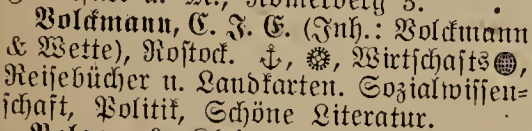 Volckmann, C. J. E. (Inh.: Volckmann
& Wette), Rostock. ⚓, Wirtschafts
Reisebücher u. Landkarten. Sozialwissen-
schaft, Politik, Schöne Literatur.